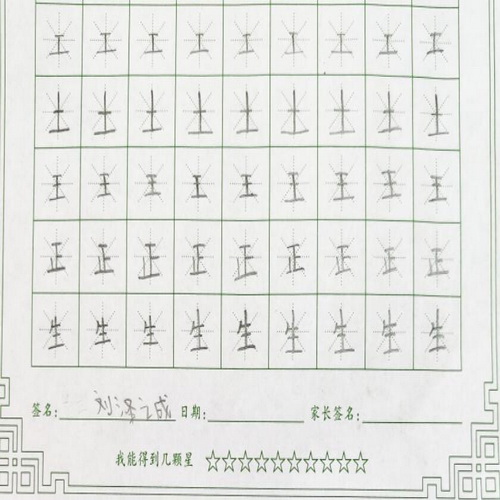 工 工 工 工 工 工 工 工 工
土 土 土 土 土 土 土 土 土
王 王 王 王 王 王 王 王 王
正 正 正 正 正 正 正 正 正
生 生 生 生 生 生 生 生 生
签名: 刘 成 日期: 家长签名:
我能得到几颗星 ☆☆☆☆☆☆☆☆☆☆